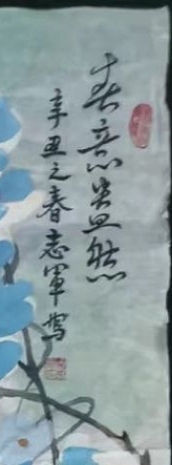 春意盎然
辛丑之春志军写